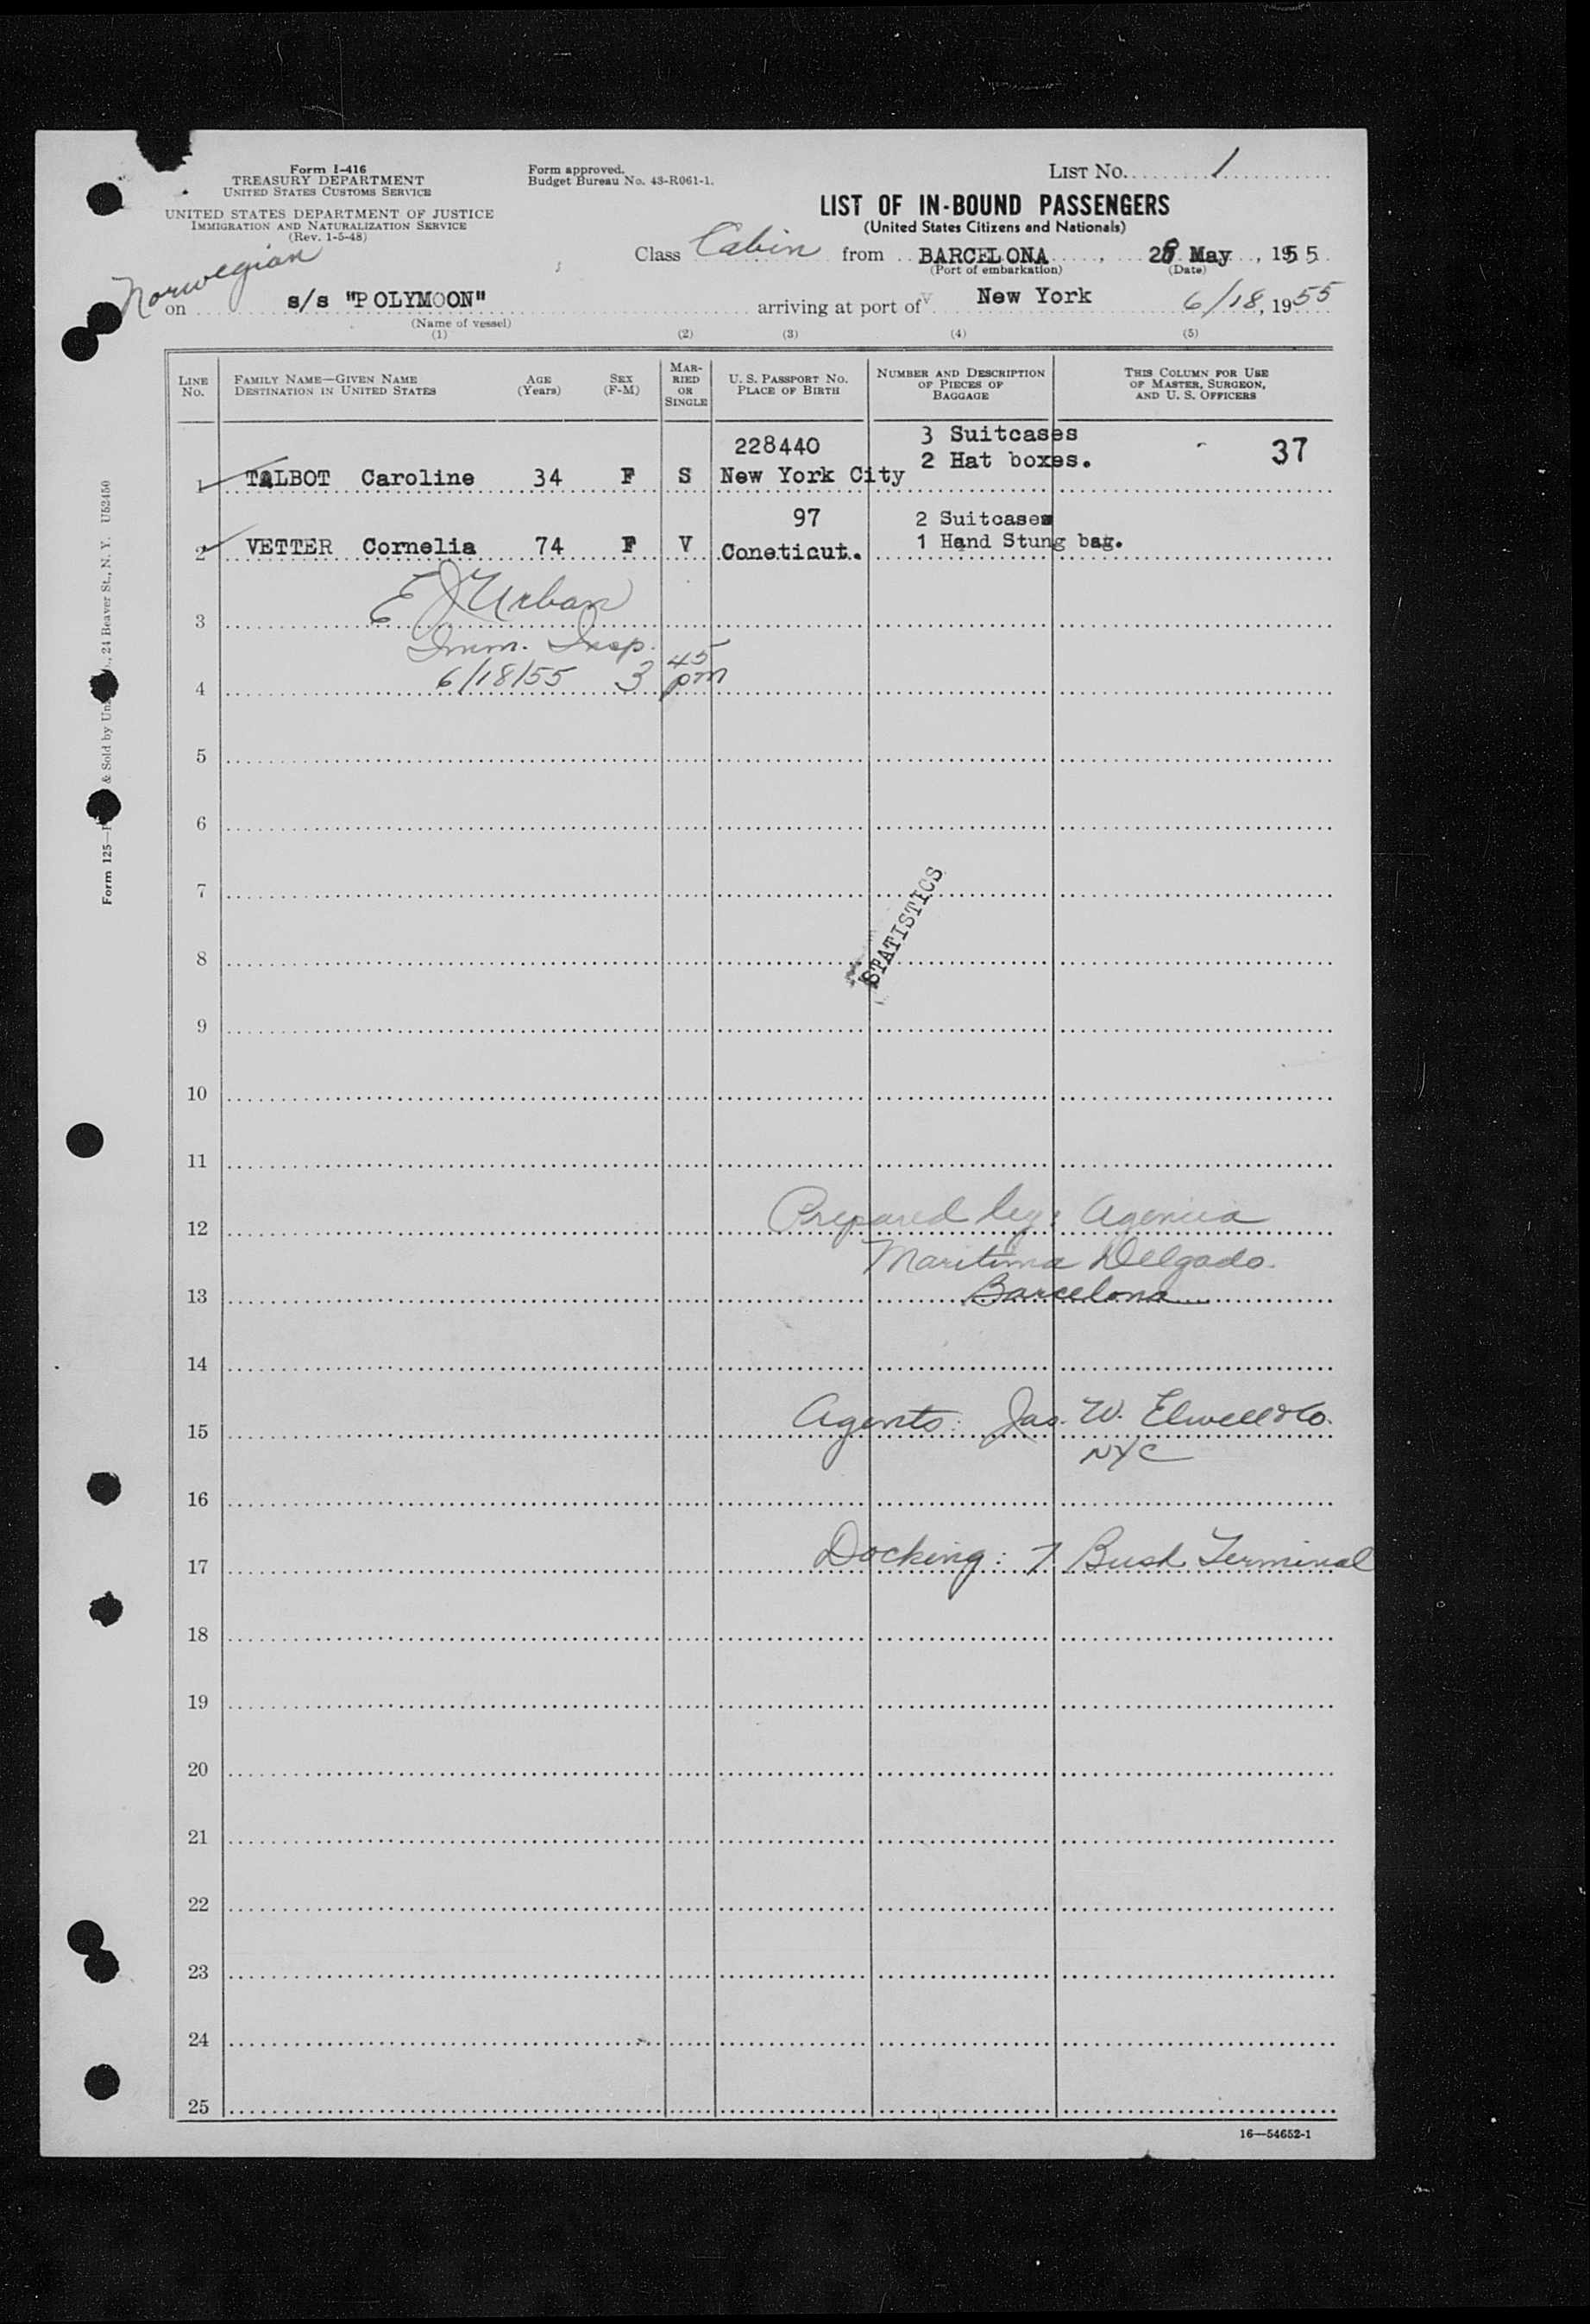 Form I-416
TREASURY DEPARTMENT
UNITED STATES CUSTOMS SERVICE
UNITED STATES DEPARTMENT OF JUSTICE
IMMIGRATION AND NATURALIZATION SERVICE
(Rev. 1-5-48)
Form approved.
Budget Bureau No. 43-R061-1.
LIST NO. 1
LIST OF IN-BOUND PASSENGERS
(United States Citizens and Nationals)
Class Cabin from BARCELONA, 28 May, 1955
(Port of embarkation) (Date)
Norwegian
on s/s "POLYMOON" arriving at port of New York 6/18, 1955
(Name of vessel)
(1) (2) (3) (4) (5)
LINE NO.
FAMILY NAME—GIVEN NAME
DESTINATION IN UNITED STATES
AGE
(Years)
SEX
(F-M)
MAR-
RIED
OR
SINGLE
U. S. PASSPORT NO.
PLACE OF BIRTH
NUMBER AND DESCRIPTION
OF PIECES OF
BAGGAGE
THIS COLUMN FOR USE
OF MASTER, SURGEON,
AND U. S. OFFICERS
228440 3 Suitcases 37
2 Hat boxes.
1 TALBOT Caroline 34 F S New York City
97 2 Suitcases
1 Hand Stung bag.
2 VETTER Cornelia 74 F V Coneticut.
E J Urban
3
Imm. Insp.
6/18/55 3 45 pm
4
5
6
7
STATISTICS
8
9
10
11
12 Prepared by: Agencia
Maritima Delgado.
13 Barcelona
14
15 Agents: Jas. W. Elwell & Co.
NYC
16
17 Docking: 7 Bush Terminal
18
19
20
21
22
23
24
25
16—54652-1
Form 125— & Sold by , 24 Beaver St., N. Y. U52450